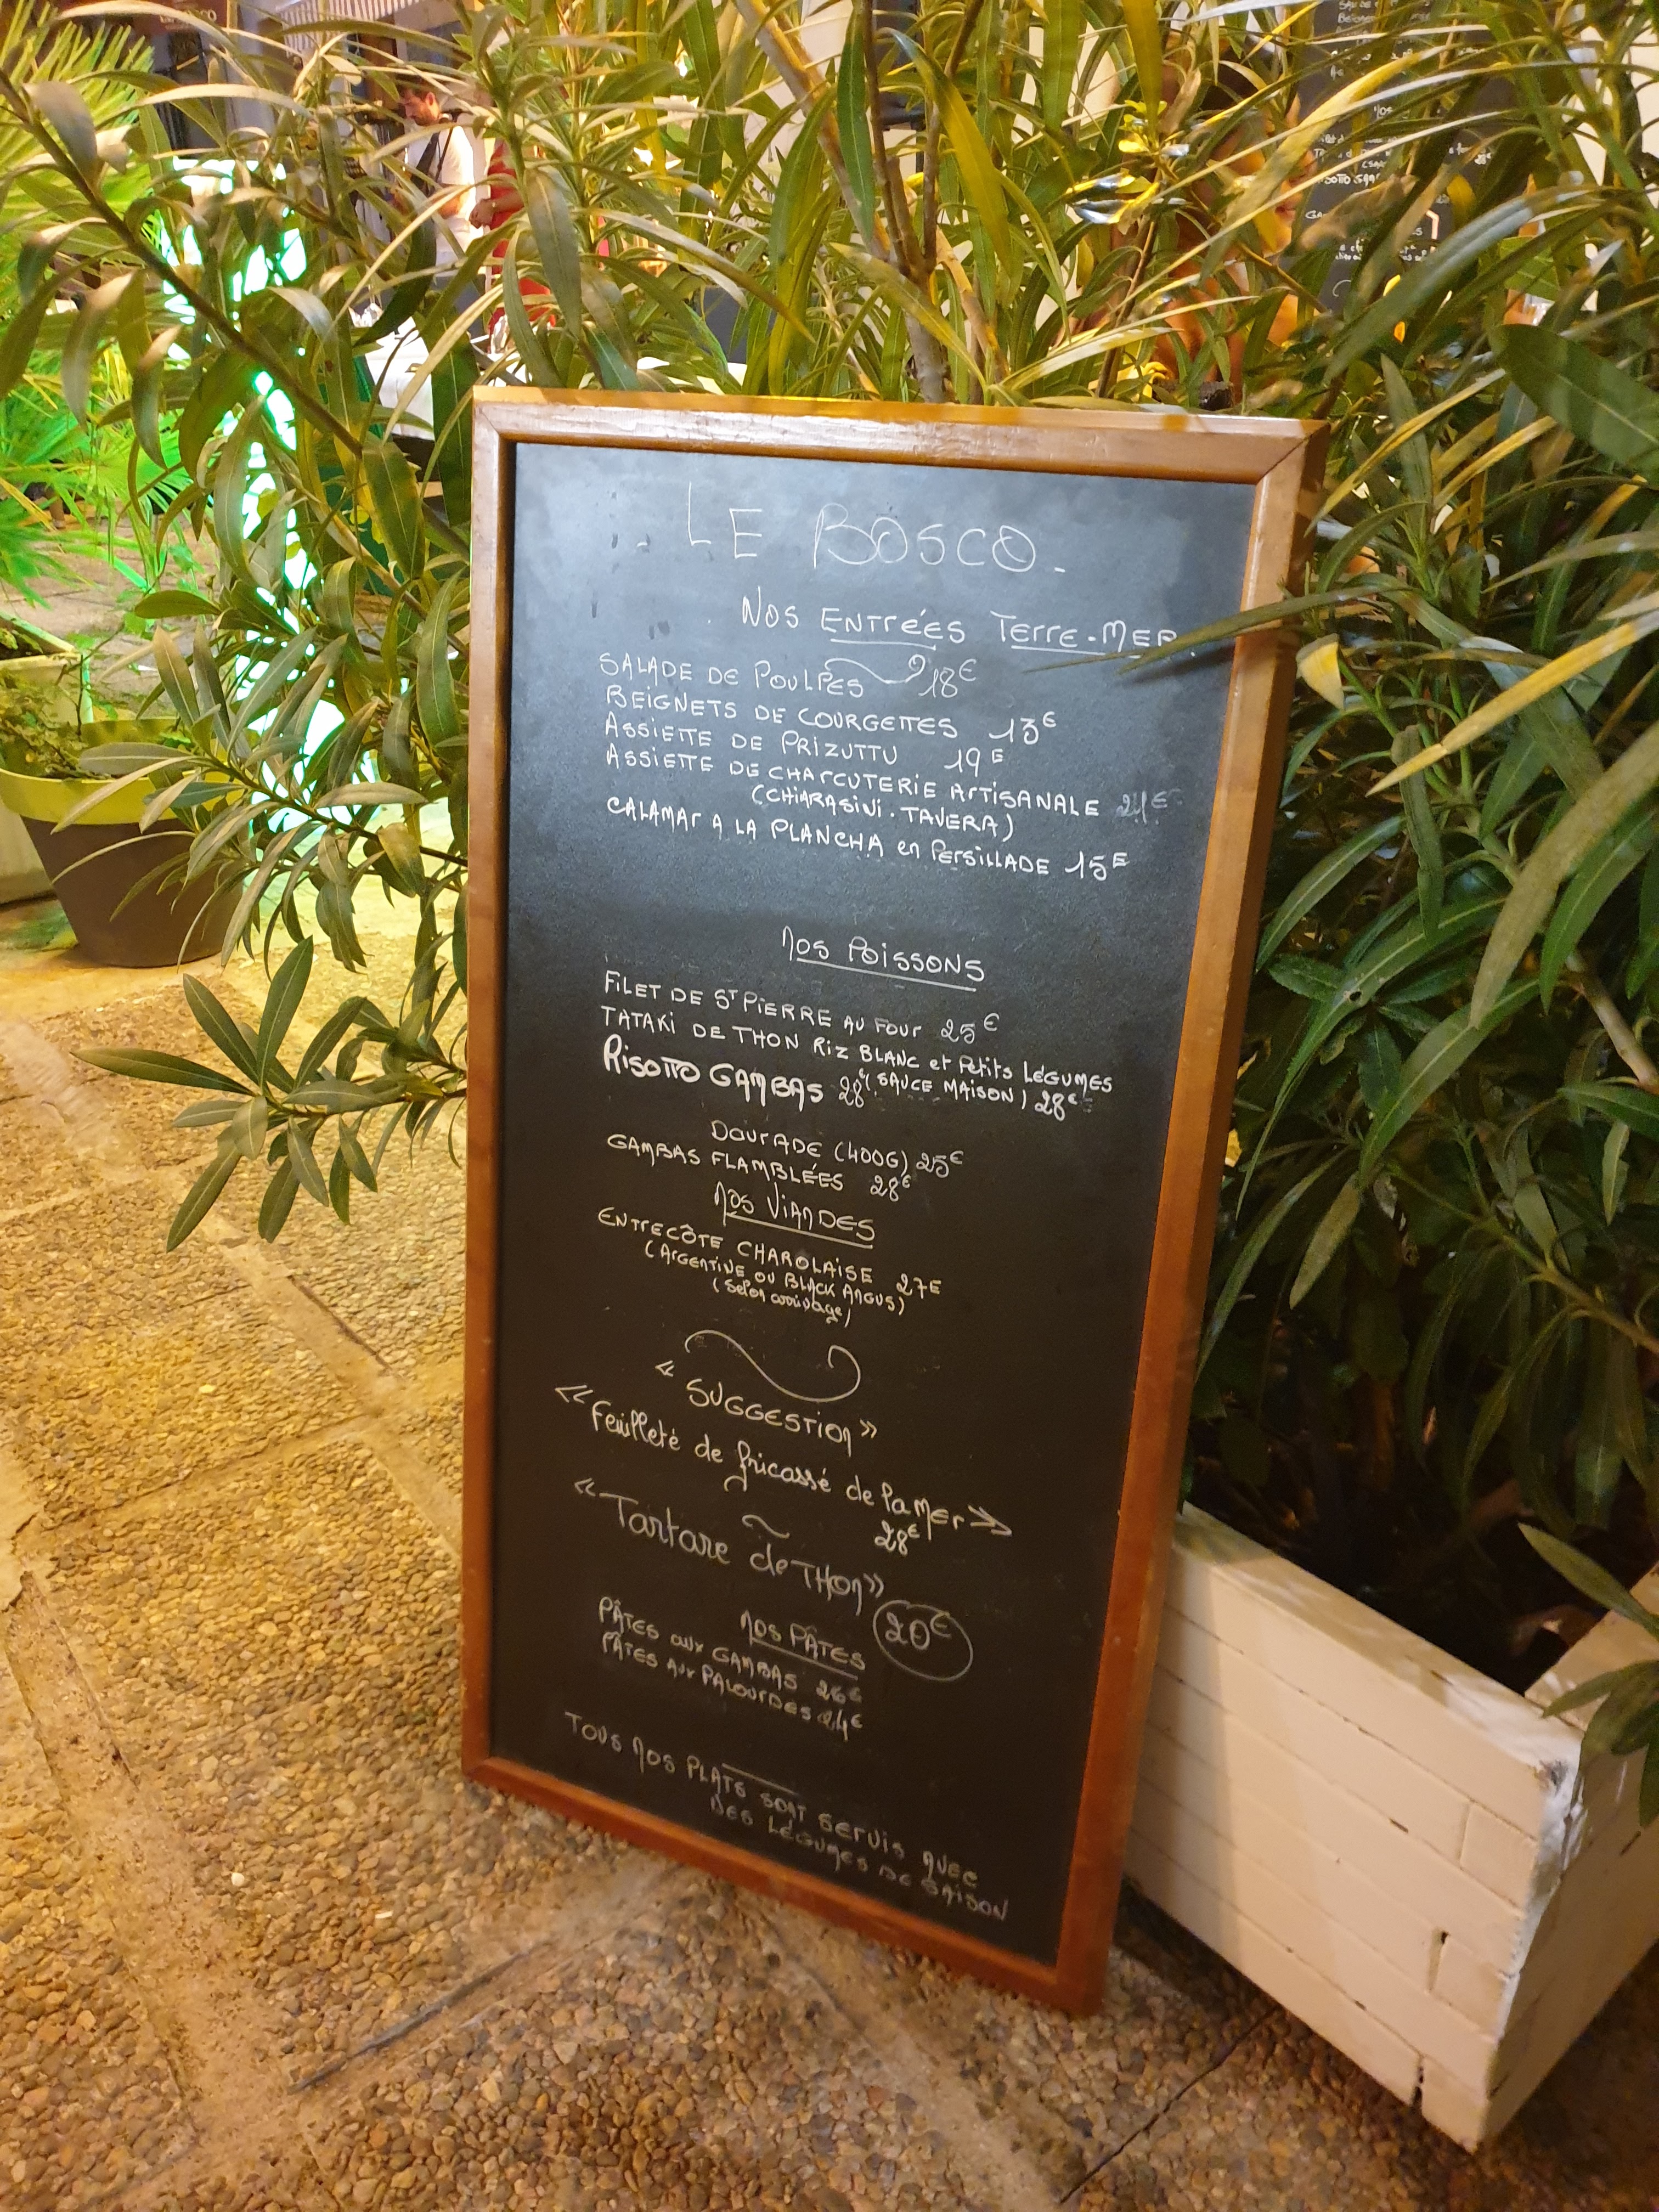 LE BOSCO.
NOS ENTRÉES TERRE-MER
SALADE DE POULPES 18€
BEIGNETS DE COURGETTES 13€
ASSIETTE DE PRIZUTTU 19€
ASSIETTE DE CHARCUTERIE ARTISANALE 21€
(CHIARASINI. TAVERA)
CALAMAR A LA PLANCHA en PERSILLADE 15€
NOS POISSONS
FILET DE ST PIERRE AU FOUR 25€
TATAKI DE THON RIZ BLANC et PETITS LÉGUMES
(SAUCE MAISON) 28€
RISOTTO GAMBAS 28€
DOURADE (400G) 25€
GAMBAS FLAMBLÉES 28€
NOS VIANDES
ENTRECÔTE CHAROLAISE 27€
(ARGENTINE OU BLACK ANGUS)
(selon arrivage)
« SUGGESTION »
« Feuilleté de fricassé de la MEr »
28€
« Tartare de THON »
20€
NOS PÂTES
PÂTES aux GAMBAS 26€
PÂTES AUX PALOURDES 24€
TOUS NOS PLATS SONT SERVIS AVEC
DES LÉGUMES DE SAISON